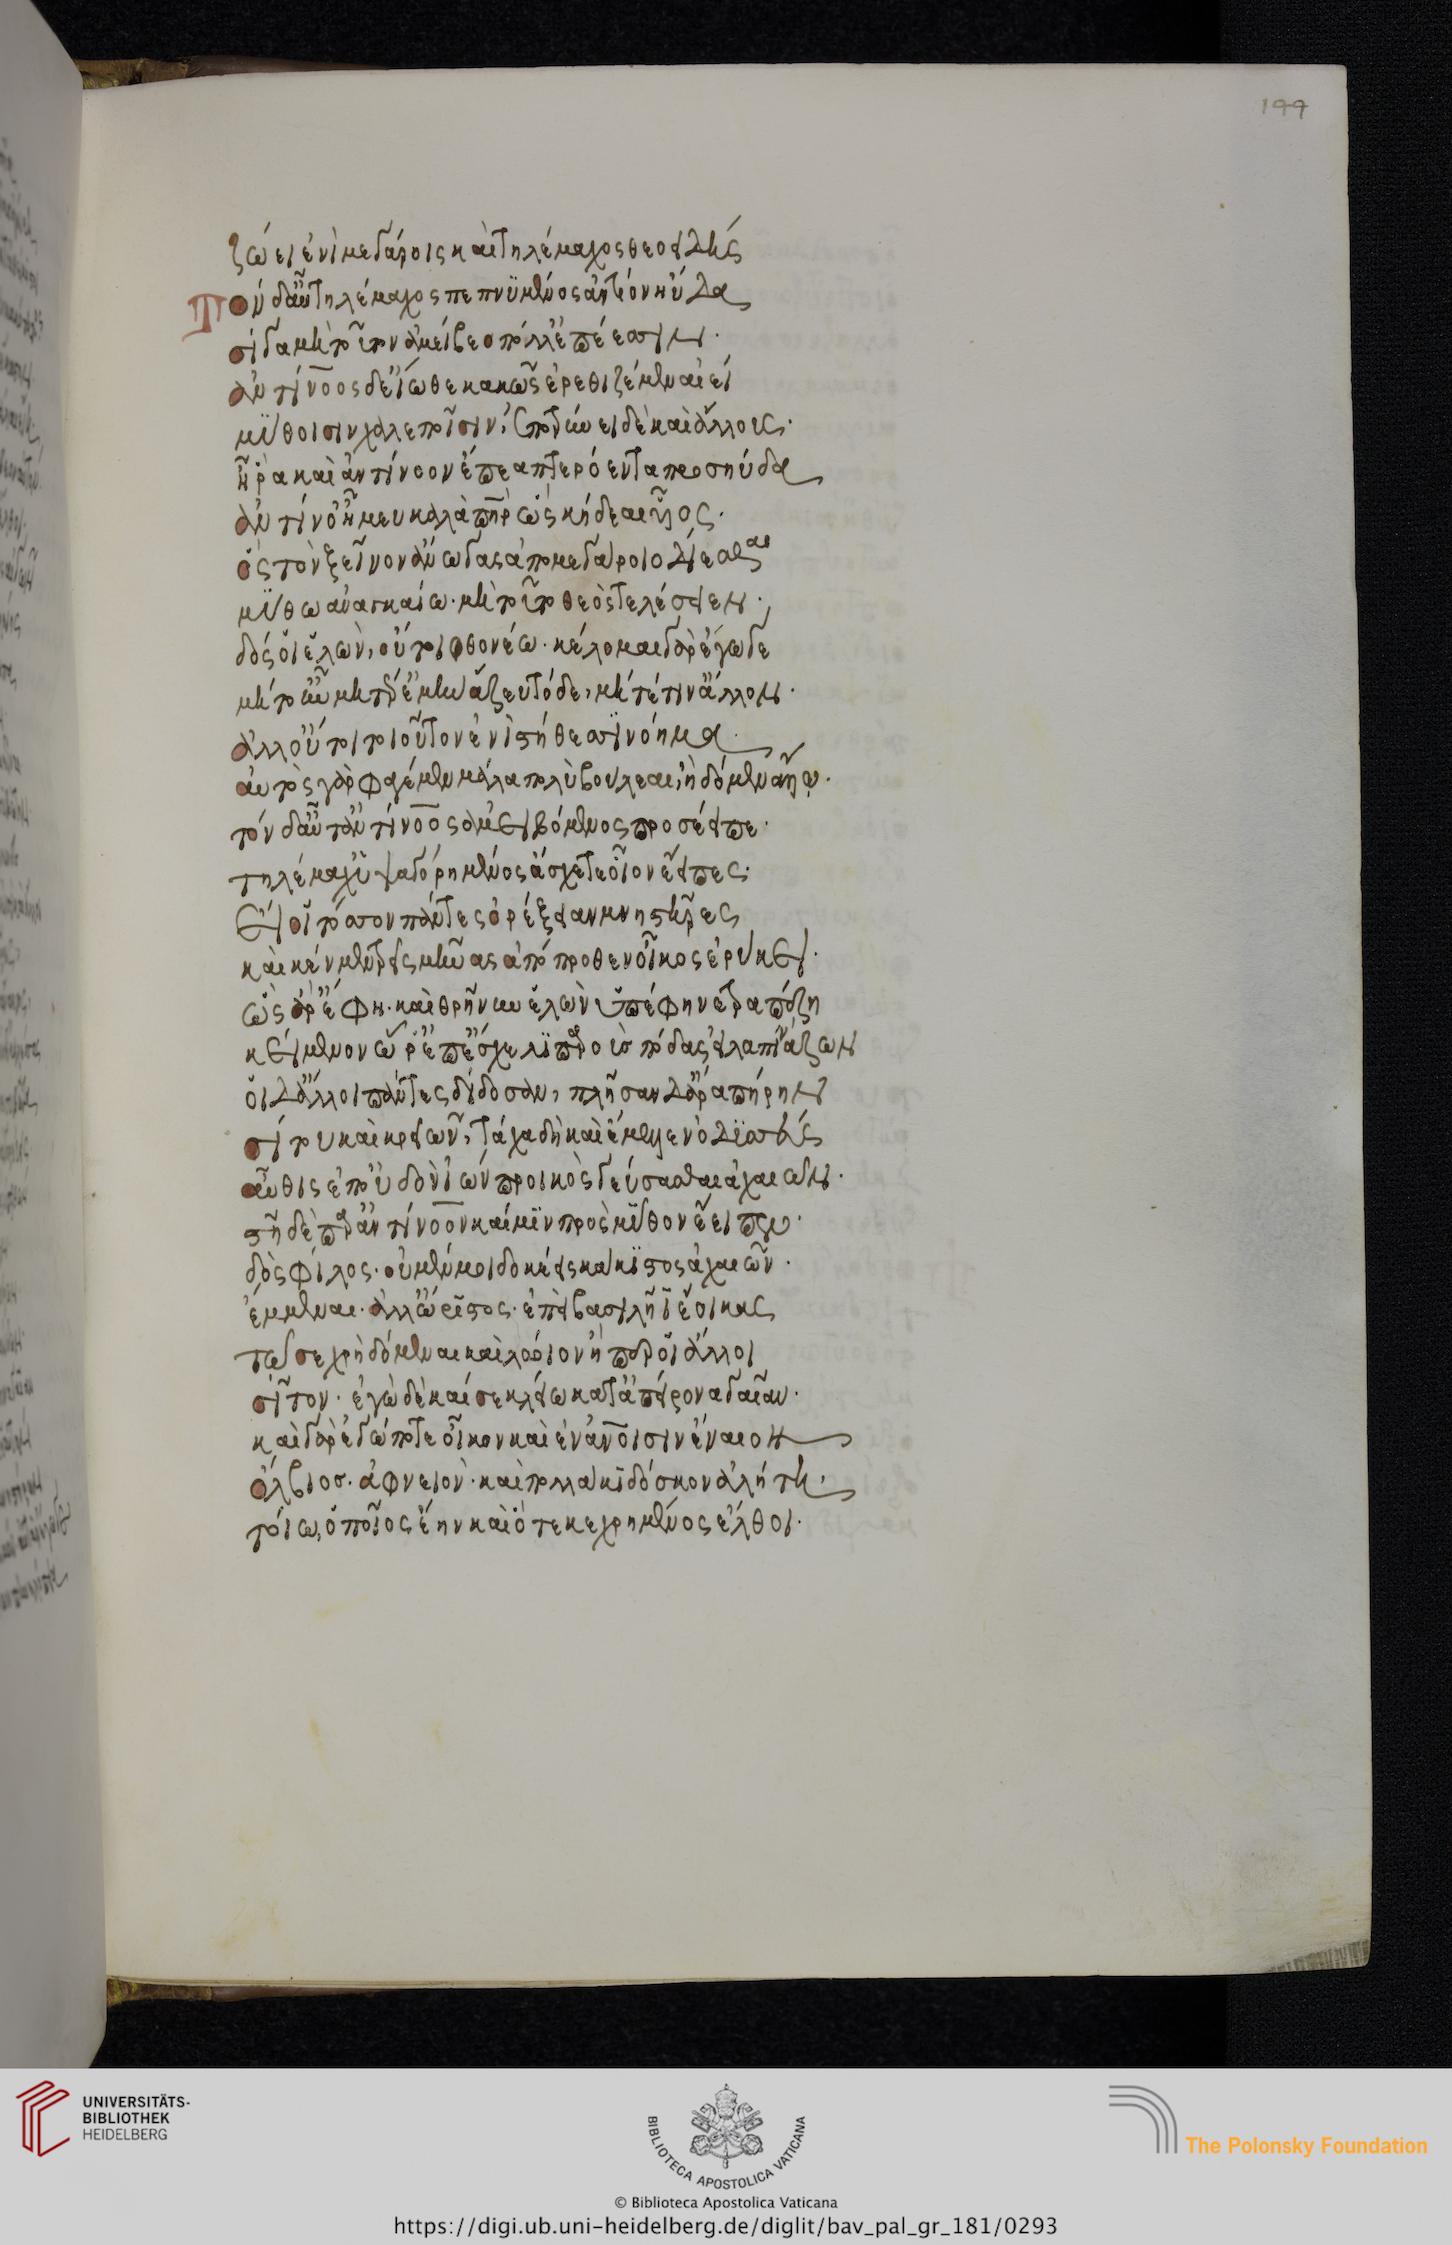 199
ζώει ἐνὶ μεγάροις καὶ τηλέμαχος θεοειδής
Τὸν δ' αὖ τηλέμαχος πεπνυμένος ἀντίον ηὔδα
σίγα μή τοι τοῦτον ἀμείβεο πόλλ' ἐπέεσσιν·
ἀντίνοος δ' εἴωθε κακῶς ἐρεθιζέμεν αἰεί
μύθοισιν χαλεποῖσιν, ἐποτρύνει δὲ καὶ ἄλλους·
ἦ ῥα καὶ ἀντίνοον ἔπεα πτερόεντα προσηύδα
ἀντίνο' ἦ μευ καλὰ πατὴρ ὣς κήδεαι υἷος·
ὃς τὸν ξεῖνον ἄνωγας ἀπὸ μεγάροιο δίεσθαι
μύθω ἀναγκαίω· μὴ τοῦτο θεὸς τελέσειεν·
δός οἱ ἑλὼν, οὔ τοι φθονέω· κέλομαι γὰρ ἔγωγε
μήτ' οὖν μητέρ' ἐμὴν ἅζευ τόδε, μήτέ τιν' ἄλλον·
ἀλλ' οὔ τοι τοιοῦτον ἐνὶ στήθεσσι νόημα·
αὐτὸς γὰρ φαγέμεν μάλα πολὺ βούλεαι, ἢ δόμεν ἄλλῳ·
τόν δ' αὖτ' ἀντίνοος ἀμειβόμενος προσέειπε·
τηλέμαχ' ὑψαγόρη μένος ἄσχετε οἷον ἔειπες·
εἴ οἱ τόσσον πάντες ὀρέξειαν μνηστῆρες
καί κέν μιν τρεῖς μῆνας ἀπόπροθεν οἶκος ἐρύκει·
ὣς ἄρ' ἔφη· καὶ θρῆνυν ἑλὼν ὑπέφηνε τραπέζη
κείμενον ὧ ῥ' ἔπεσχε λιπαροὺς πόδας εἰλαπινάζων
οἱ δ' ἄλλοι πάντες δίδοσαν, πλῆσαν δ' ἄρα πήρην
σίτου καὶ κρειῶν, τάχα δὴ καὶ ἔμελλεν ὀδυσσεύς
αὖθις ἐπ' οὐδὸν ἰών προικὸς γεύσασθαι ἀχαιῶν·
στῆ δὲ παρ' ἀντίνοον καί μιν πρὸς μῦθον ἔειπεν·
δὸς φίλος· οὐ μέν μοι δοκέεις κάκιστος ἀχαιῶν·
ἔμμεναι· ἀλλ' ὤριστος· ἐπεὶ βασιλῆϊ ἔοικας
τῶ σε χρὴ δόμεναι καὶ λώϊον ἠέπερ οἱ ἄλλοι
σῖτον· ἐγὼ δέ καί σε κλείω κατ' ἀπείρονα γαῖαν·
καὶ γὰρ ἐγώ ποτε οἶκον καὶ ἐν ἀνθρώποισιν ἔναιον
ὄλβιος· ἀφνειὸν· καὶ πολλάκι δόσκον ἀλήτη,
τοίω, ὁποῖος ἔην καὶ ὅτε κεχρημένος ἔλθοι·
UNIVERSITÄTS-
BIBLIOTHEK
HEIDELBERG
BIBLIOTECA APOSTOLICA VATICANA
© Biblioteca Apostolica Vaticana
The Polonsky Foundation
https://digi.ub.uni-heidelberg.de/diglit/bav_pal_gr_181/0293